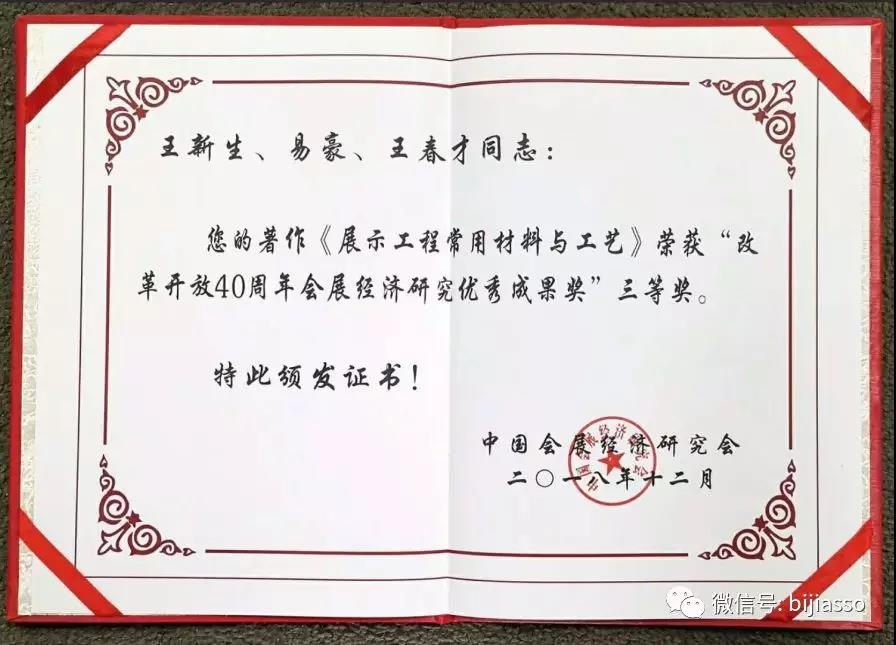 王新生、易豪、王春才同志：
您的著作《展示工程常用材料与工艺》荣获“改
革开放40周年会展经济研究优秀成果奖”三等奖。
特此颁发证书！
中国会展经济研究会
二〇一八年十二月
中国会展经济研究会
微信号: bijiasso